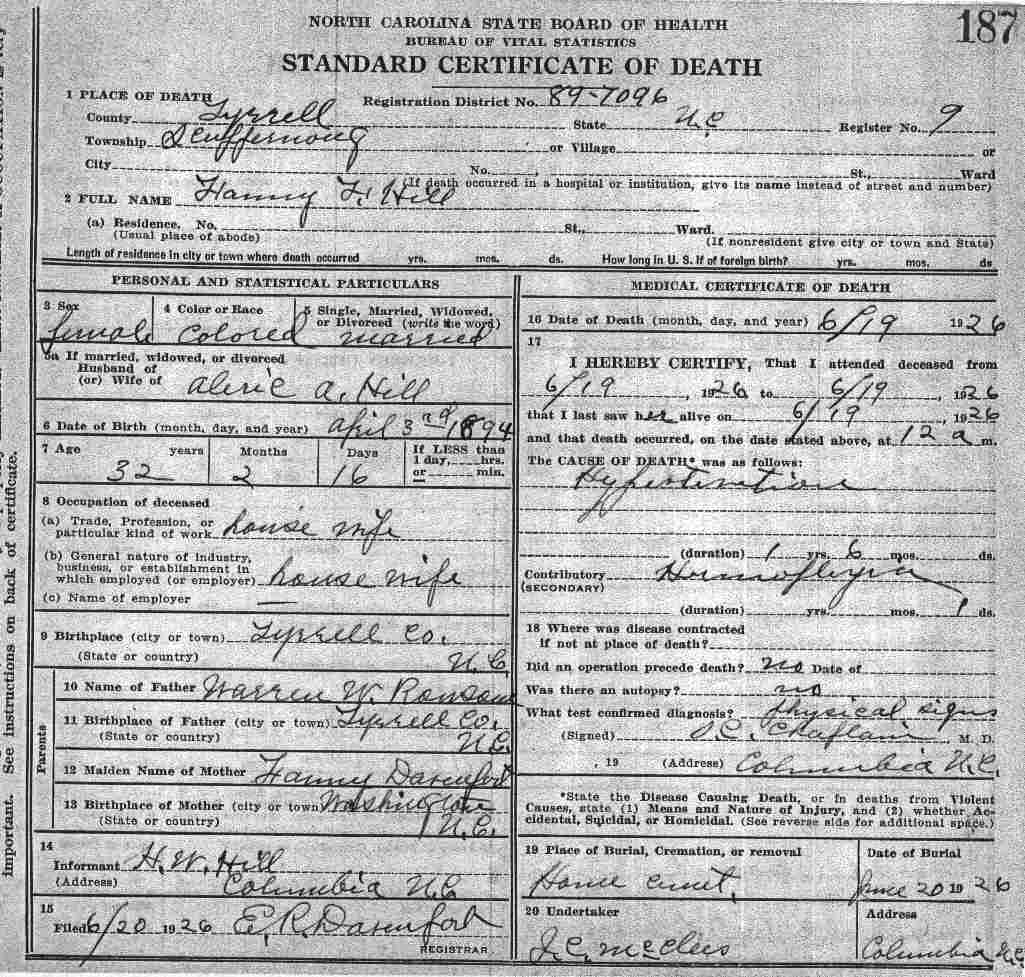 NORTH CAROLINA STATE BOARD OF HEALTH
187
BUREAU OF VITAL STATISTICS
STANDARD CERTIFICATE OF DEATH
1 PLACE OF DEATH
Registration District No. 89-7096
County Tyrrell State N.C Register No. 9
Township Scuppernong or Village or
City No. , St., Ward
(If death occurred in a hospital or institution, give its name instead of street and number)
2 FULL NAME Fanny F. Hill
(a) Residence, No. St., Ward.
(Usual place of abode) (If nonresident give city or town and State)
Length of residence in city or town where death occurred yrs. mos. ds. How long in U. S. if of foreign birth? yrs. mos. ds
PERSONAL AND STATISTICAL PARTICULARS
3 Sex 4 Color or Race 5 Single, Married, Widowed,
or Divorced (write the word)
female Colored married
5a If married, widowed, or divorced
Husband of
(or) Wife of Aleric A. Hill
6 Date of Birth (month, day, and year) April 3rd 1894
7 Age years Months Days If LESS than
1 day, hrs.
or min.
32 2 16
8 Occupation of deceased
(a) Trade, Profession, or
particular kind of work house wife
(b) General nature of industry,
business, or establishment in
which employed (or employer) house wife
(c) Name of employer —
9 Birthplace (city or town) Tyrrell Co.
(State or country) N.C.
Parents
10 Name of Father Warren W.
11 Birthplace of Father (city or town) Tyrrell Co.
(State or country) N.C.
12 Maiden Name of Mother Fanny Davenport
13 Birthplace of Mother (city or town) Washington
(State or country) N.C.
14
Informant H. W. Hill
(Address) Columbia N.C
15
Filed 6/20 1926 E. R. Davenport
REGISTRAR
MEDICAL CERTIFICATE OF DEATH
16 Date of Death (month, day, and year) 6/19 1926
17
I HEREBY CERTIFY, That I attended deceased from
6/19 , 1926 to 6/19 , 1926
that I last saw her alive on 6/19 , 1926
and that death occurred, on the date stated above, at 12 a m.
The CAUSE OF DEATH* was as follows:
(duration) 1 yrs. 6 mos. ds.
Contributory
(SECONDARY)
(duration) yrs. mos. 1 ds.
18 Where was disease contracted
if not at place of death?
Did an operation precede death? no Date of
Was there an autopsy? no
What test confirmed diagnosis? Physical signs
(Signed) , M. D.
, 19 (Address) Columbia N.C.
*State the Disease Causing Death, or in deaths from Violent
Causes, state (1) Means and Nature of Injury, and (2) whether Ac-
cidental, Suicidal, or Homicidal. (See reverse side for additional space.)
19 Place of Burial, Cremation, or removal Date of Burial
Home cemet. June 20 1926
20 Undertaker Address
J. C. McClees Columbia N.C.
important. See instructions on back of certificate.